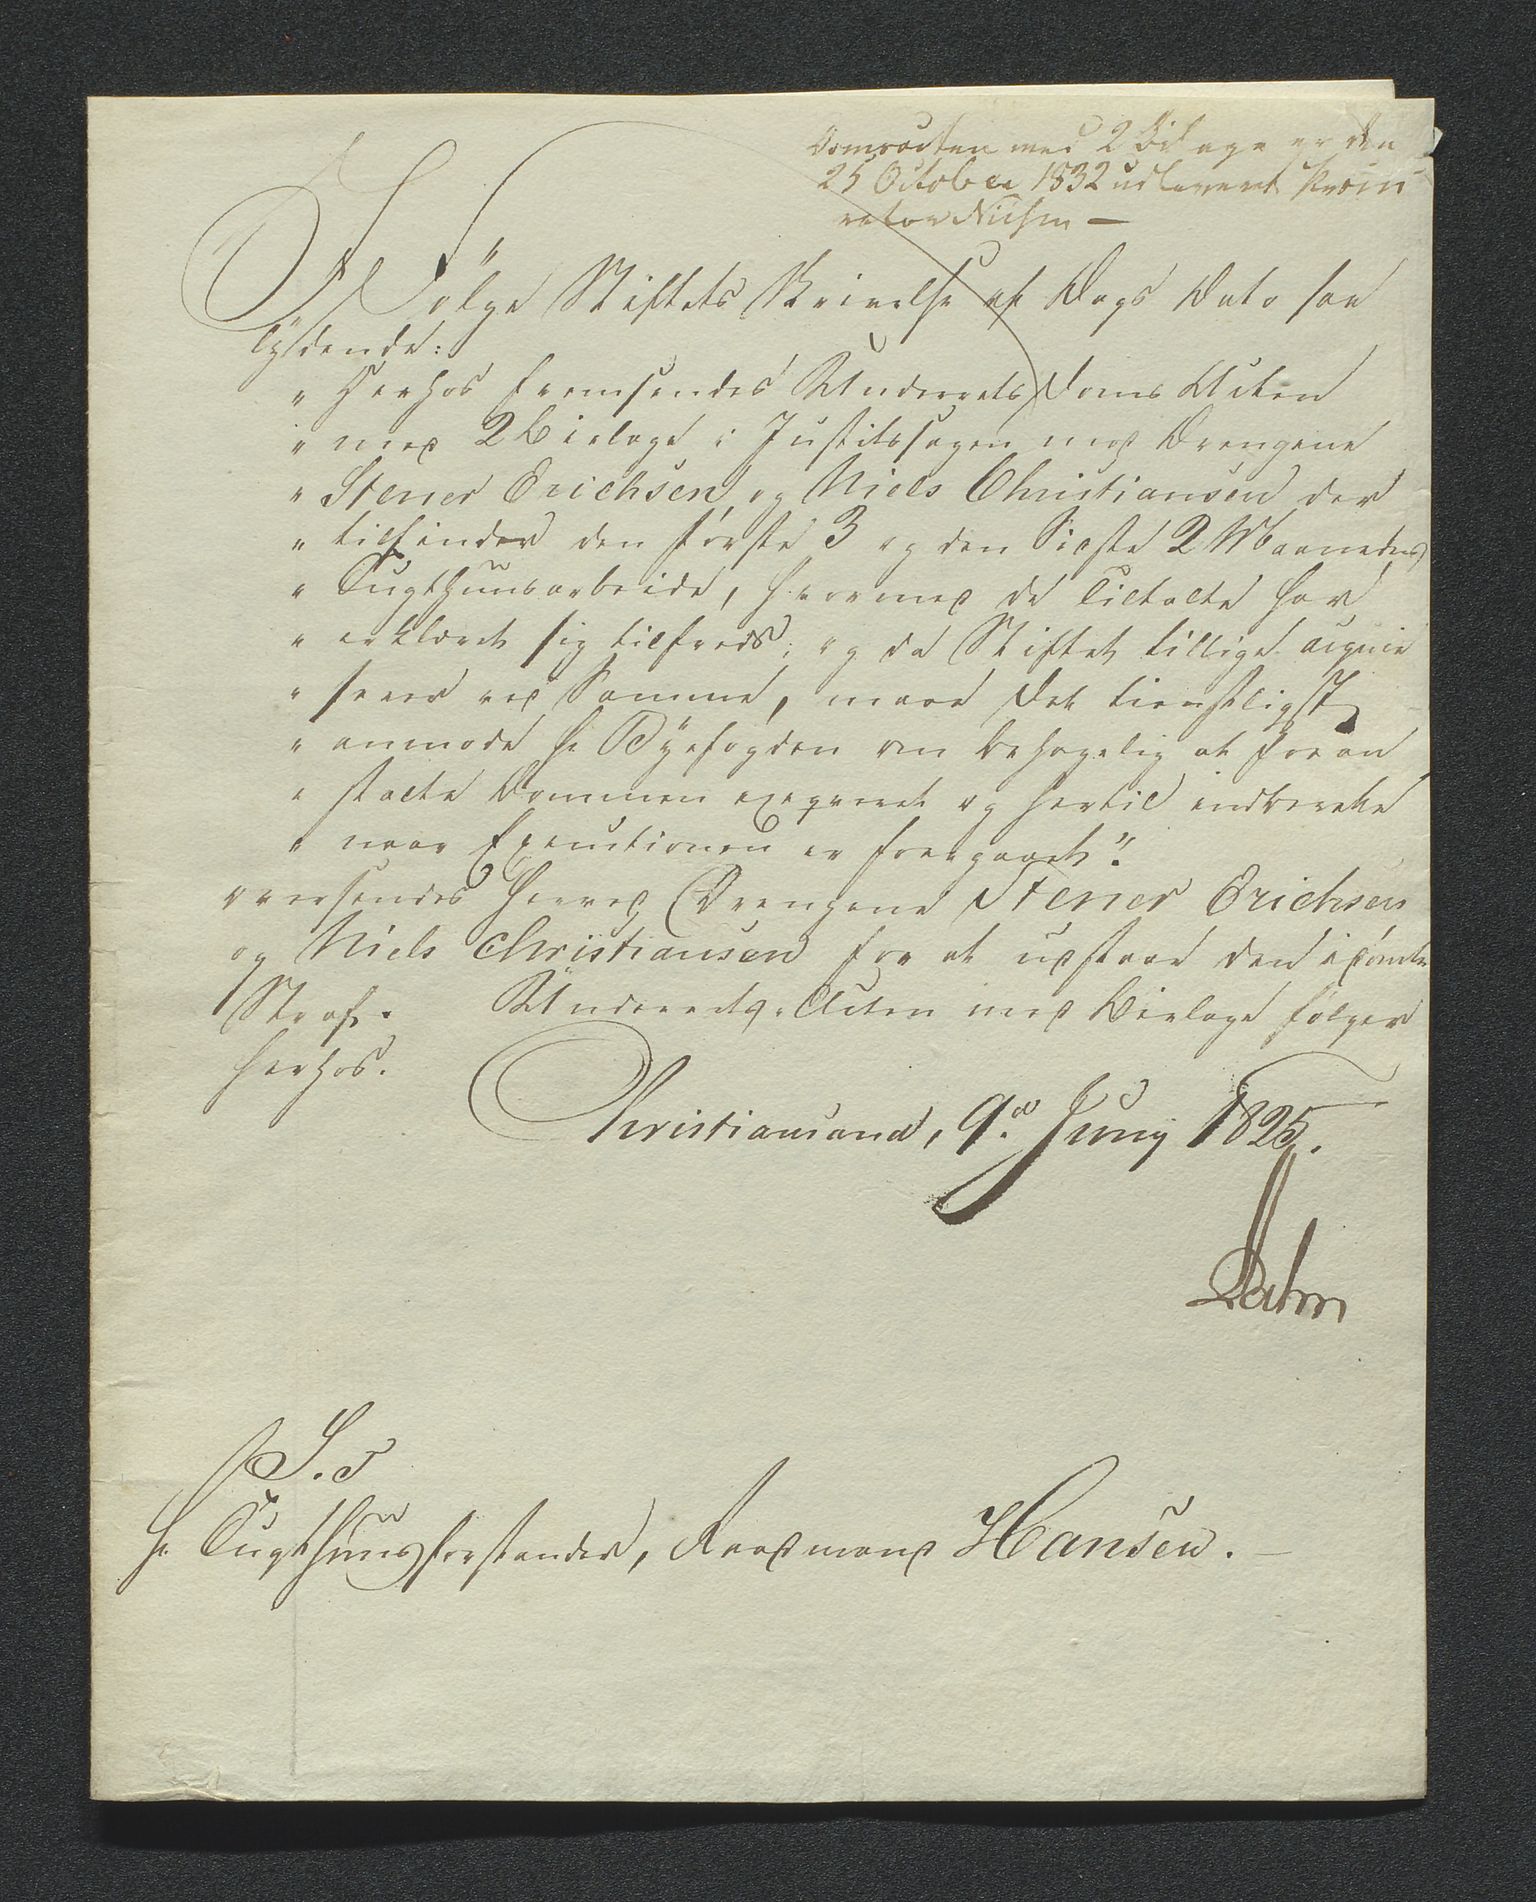 Domsacten med 2 Bilage er den
25 October 1832 udleveret Procu
rator Nielsen —
Ifölge Stiftets Skrivelse af Dags Dato saa
lÿdende:
" Herhos fremsendes Underrets Doms Acten
" med 2 Bielage i Justitssagen mod Drengene
" Stener Erichsen og Niels Christiansen der
" tilfinder den første 3 og den Sidste 2 Maaneders
" Tugthuusarbeide, hvormed de Tiltalte har
" erklæret sig tilfreds; og da Stiftet tillige acqvie
" serer ved Samme, maae det tienstligst
" anmode Hr Bÿefogden om behagelig at foran
" stalte Dommen exeqveret og hertil indberette
" naar Executionen er foregaaet".
oversendes hermed Drengene Stener Erichsen
og Niels Christiansen for at udstaae den idömte
Straf. Underrets-Acten med Bielage følger
herhos.
Christiansand, 9d Juny 1825.
Dahm
S. T.
Hr Tugthuusforstander, Raadmand Hansen. —